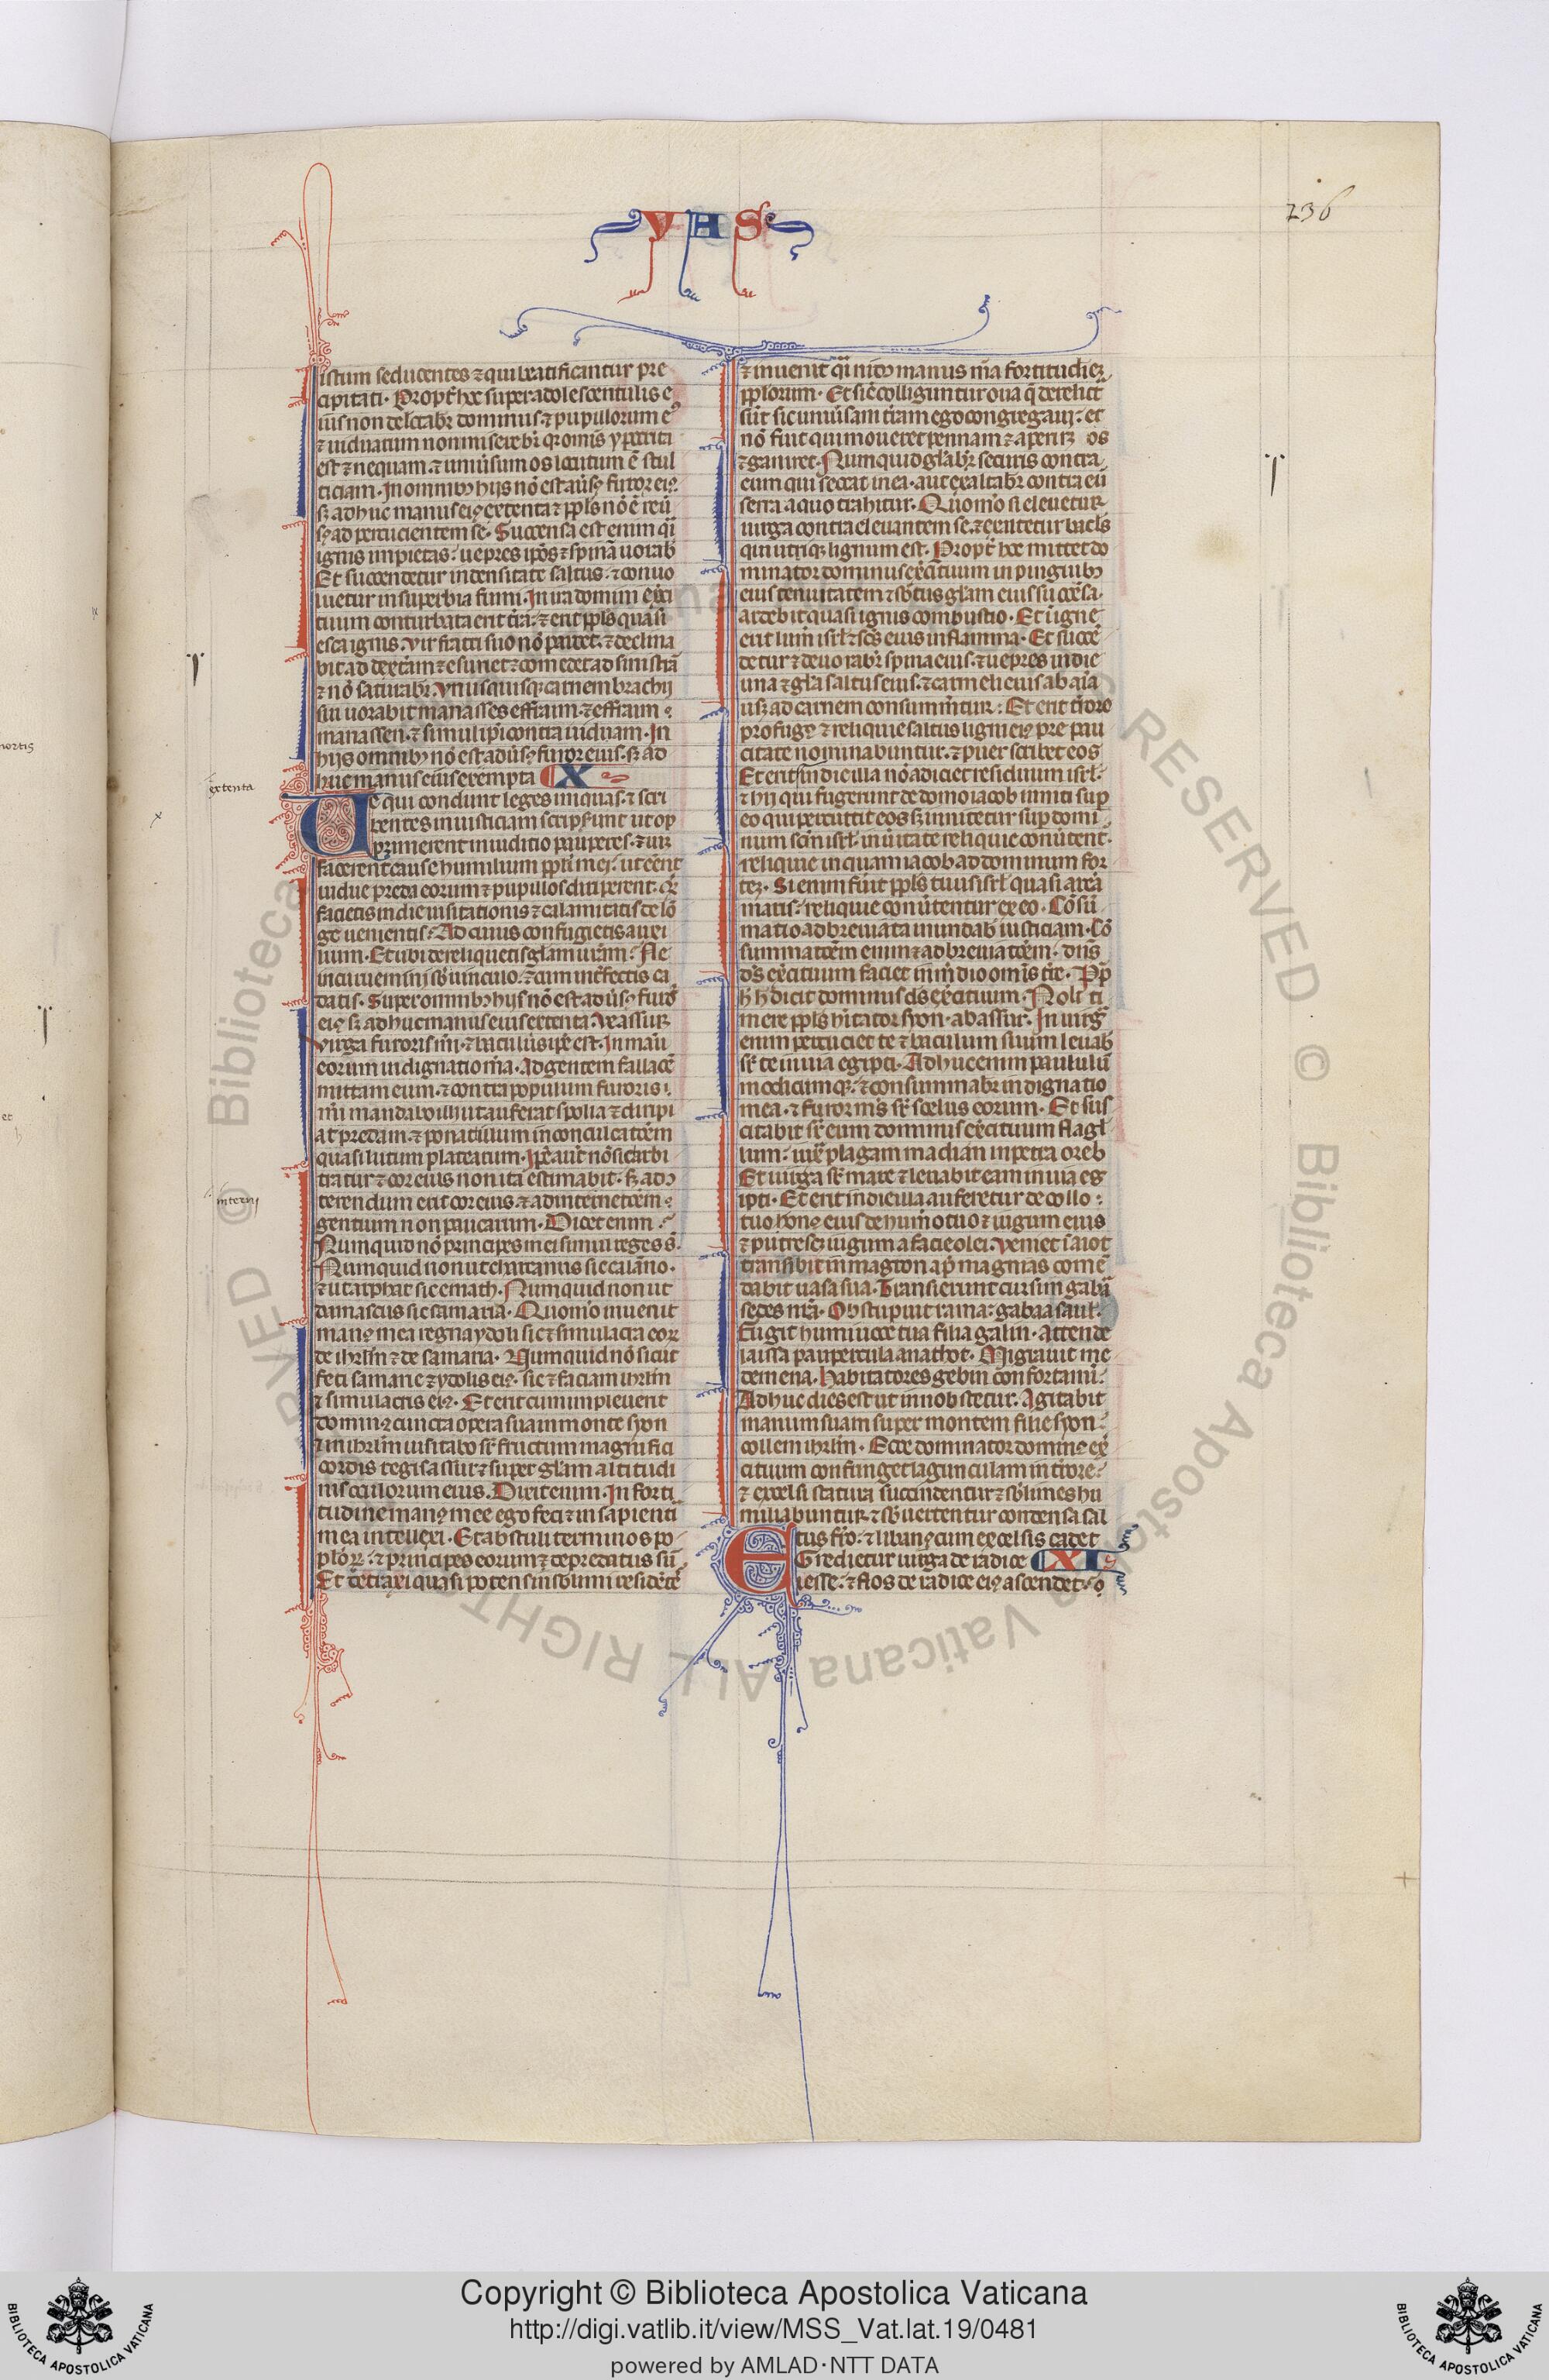 YAS
236
istum seducentes ⁊ qui beatificantur pre
cipitati. Propt̄ hoc super adolescentulis e
ius non delectabr̄ dominus. ⁊ pupillorum eꝰ
⁊ uiduarum non miserebr̄. qr omīs ypocrita
est ⁊ nequam. ⁊ uniūsum os locutum ē stul
ticiam. In omnibꝫ hijs nō est aūsꝰ furor eiꝰ.
sꝫ adhuc manus eiꝰ extenta ⁊ ppl̄s nō ē reūs
sꝰ ad percucientem se. Succensa est enim qͣi
ignis impietas. uepres ip̄os ⁊ spinā uorab̄
Et succendetur in densitate saltus. ⁊ conuo
luetur in superbia fumi. In ira domini ex̄ci
tuum conturbata erit tr̄a. ⁊ erit ppl̄s quasi
esca ignis. Vir fratri suo nō parcet. ⁊ declina
bit ad dext̄am ⁊ esuriet ⁊ comedet ad sinistrā
⁊ nō saturabr̄. Vnusquisqꝫ carnem brachij
sui uorabit manasses effraim. ⁊ effraim
manassen. ⁊ simul ip̄i contra iudam. In
hijs omnibꝫ nō est aūsꝰ furor eius. sꝫ ad
huc manus eius exempta X
extenta
Ue qui condunt leges iniquas. ⁊ scri
bentes iniusticiam scripserunt ut op
primerent in iuditio pauperes. ⁊ uim
facerent cause humilium ppl̄i mei. ut eēnt
uidue preda eorum ⁊ pupillos diriperent. Qͥd
facietis in die uisitationis ⁊ calamitatis de lō
ge uenientis. Ad cuius confugietis auxi
lium. Et ubi derelinquetis gl̄am ur̄am. Ne
incuruemini sb̄ uinculo. ⁊ cum int̄fectis ca
datis. Super omnibꝫ hijs nō est aūsꝰ furor
eiꝰ sꝫ adhuc manus eius extenta. Ve assur
virga furoris mī. ⁊ baculus ip̄e est. In manu
eorum indignatio mea. Ad gentem fallacē
mittam eum. ⁊ contra populum furoris
mī mandabo illi ut auferat spolia ⁊ diripi
at predam. ⁊ ponat illum in conculcatōem
quasi lutum platearum. Ip̄e aut̄ nō sic arbi
tratur ⁊ cor eius non ita estimabit. sꝫ ad 9
terendum erit cor eius. ⁊ ad internetōem
interni
gentium non paucarum. Dicet enim.
Numquid nō principes mei simul reges s̄.
Numquid non ut charcamis sic calāno.
⁊ ut arphat sic emath. Numquid non ut
damascus sic samaria. Quomō inuenit
manꝰ mea regna ydoli sic ⁊ simulacra eoꝝ
de ihrl̄m ⁊ de samaria. Numquid nō sicut
feci samarie ⁊ ydolis eiꝰ. sic ⁊ faciam ihrl̄m
⁊ simulacris eiꝰ. Et erit cum impleuerit
dominꝰ cuncta opera sua in monte syon
⁊ in ihrl̄m uisitabo sr̄ fructum magnifici
cordis regis assur ⁊ super gl̄am altitudi
nis oculorum eius. Dixit enim. In forti
tudine manꝰ mee ego feci ⁊ in sapientia
mea intellexi. Et abstuli terminos po
ploꝝ. ⁊ principes eorum ⁊ depredatus sū
Et detraxi quasi potens in sb̄limi residētes
⁊ inuenit qͣi nidꝫ manus mea fortitudieꝫ
pplorum. Et sic̄ colliguntur oua q̄ derelicta
sūt sic uniūsam t̄ram ego congregaui. et
nō fuit qui moueret pennam ⁊ aperiret os
⁊ ganniret. Numquid gl̄abr̄ securis contra
eum qui seccat in ea. aut exaltabr̄ contra eū
serra a quo trahitur. Quomō si eleuetur
uirga contra eleuantem se. ⁊ exaltetur bacls
qui utiqꝫ lignum est. Propt̄ hoc mittet do
minator dominus ex̄cituum in pinguibꝫ
eius tenuitatem ⁊ sb̄tus gl̄am eius succēsa.
ardebit quasi ignis combustio. Et ignē
erit lum̄ isrl̄ ⁊ sc̄s eius in flamma. Et succē
detur ⁊ deuorabr̄ spina eius. ⁊ uepres in die
una ⁊ gl̄a saltus eius. ⁊ carmeli eius ab aīa
usqꝫ ad carnem consummetur. Et erit t̄rore
profugꝰ ⁊ reliquie saltus ligni eiꝰ pre pau
citate nominabuntur. ⁊ puer scribet eos
Et erit in die illa nō adiciet residuum isrl̄.
⁊ hij qui fugerint de domo iacob inniti sup̄
eo qui percuttit eos sꝫ innitetur sup̄ domi
num scm̄ isrl̄ in ūitate reliquie conūtent̄.
reliquie inquam iacob ad dominum for
teꝫ. Si enim fūit ppl̄s tuus isrl̄ quasi arena
maris. reliquie conūtentur ex eo. Cōsū
matio adbreuiata inundab̄ iusticiam. Cō
summatōem enim ⁊ adbreuiatōem. dn̄s
ds̄ ex̄cituum faciet in mͤdio omīs tr̄e. Pp̄
h̄ h̄ dicit dominus ds̄ ex̄cituum. Noli ti
mere ppl̄s hītator syon. ab assur. In uirgͣ
enim percuciet te ⁊ baculum suum leuab̄
sr̄ te in uia egipti. Adhuc enim paululū
modicumqꝫ. ⁊ consummabr̄ indignatio
mea. ⁊ furor ms̄ sr̄ scelus eorum. Et sus
citabit sr̄ eum dominus ex̄cituum flagl̄
lum. iuxͣ plagam madian in petra oreb
Et uirga sr̄ mare ⁊ leuabit eam in uia eg
ipti. Et erit in die illa auferetur de collo
tuo honꝰ eius de hum̄o tuo ⁊ iugum eius
⁊ putrescet iugum a facie olei. Veniet ī aiot
transibit in magron ap̄ magmas comē
dabit uasa sua. Transierunt cursim gaba
sedes nr̄a. Obstupuit rama. gabaa saul.
Fugit hinni uoce tua filia galin. Attende
laissa paupercula anathot. Migrauit me
demena. Habitatores gebin confortami.
Adhuc dies est ut in nob stetur. Agitabit
manum suam super montem filie syon.
collem ihrl̄m. Ecce dominator dominꝰ ex̄
cituum confringet lagunculam in t̄rore.
⁊ excelsi statura succindentur ⁊ sb̄limes hu
miliabuntur. ⁊ sb̄uertentur condensa sal
tus fr̄o. ⁊ libanꝰ cum excelsis cadet
EGredietur uirga de radice XI
iesse. ⁊ flos de radice eiꝰ ascendet.
Copyright © Biblioteca Apostolica Vaticana
http://digi.vatlib.it/view/MSS_Vat.lat.19/0481
powered by AMLAD·NTT DATA
BIBLIOTECA APOSTOLICA VATICANA
BIBLIOTECA APOSTOLICA VATICANA